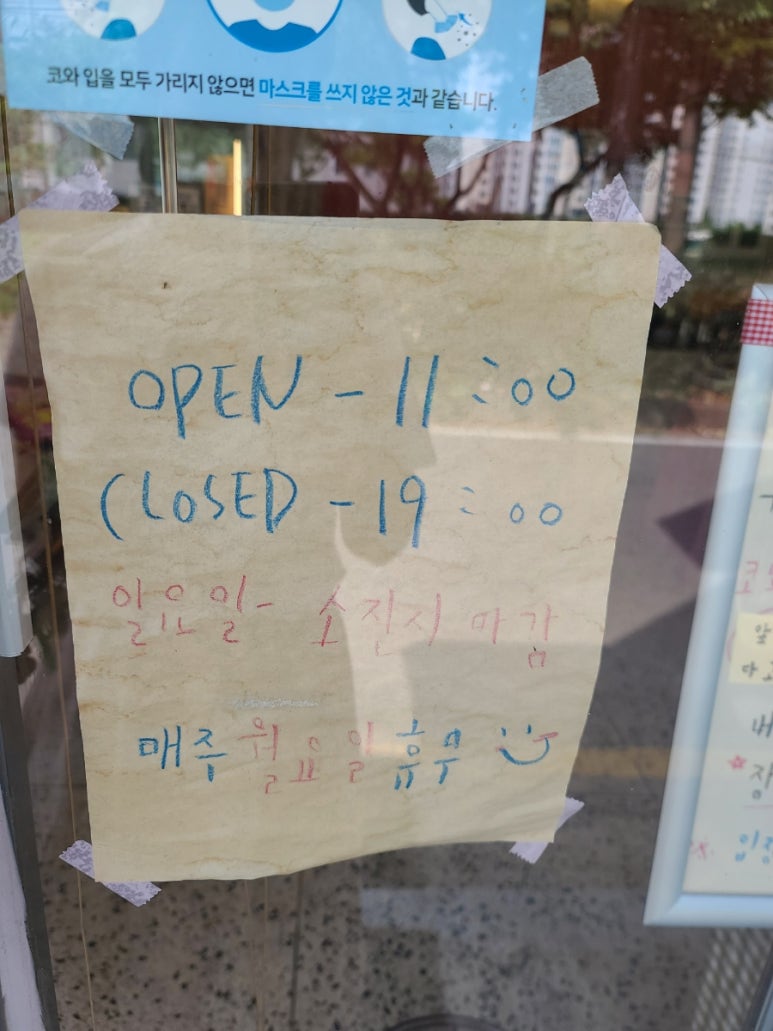 코와 입을 모두 가리지 않으면 마스크를 쓰지 않은 것과 같습니다.
OPEN - 11:00
CLOSED - 19:00
일요일- 소진시 마감
매주 월요일 휴무